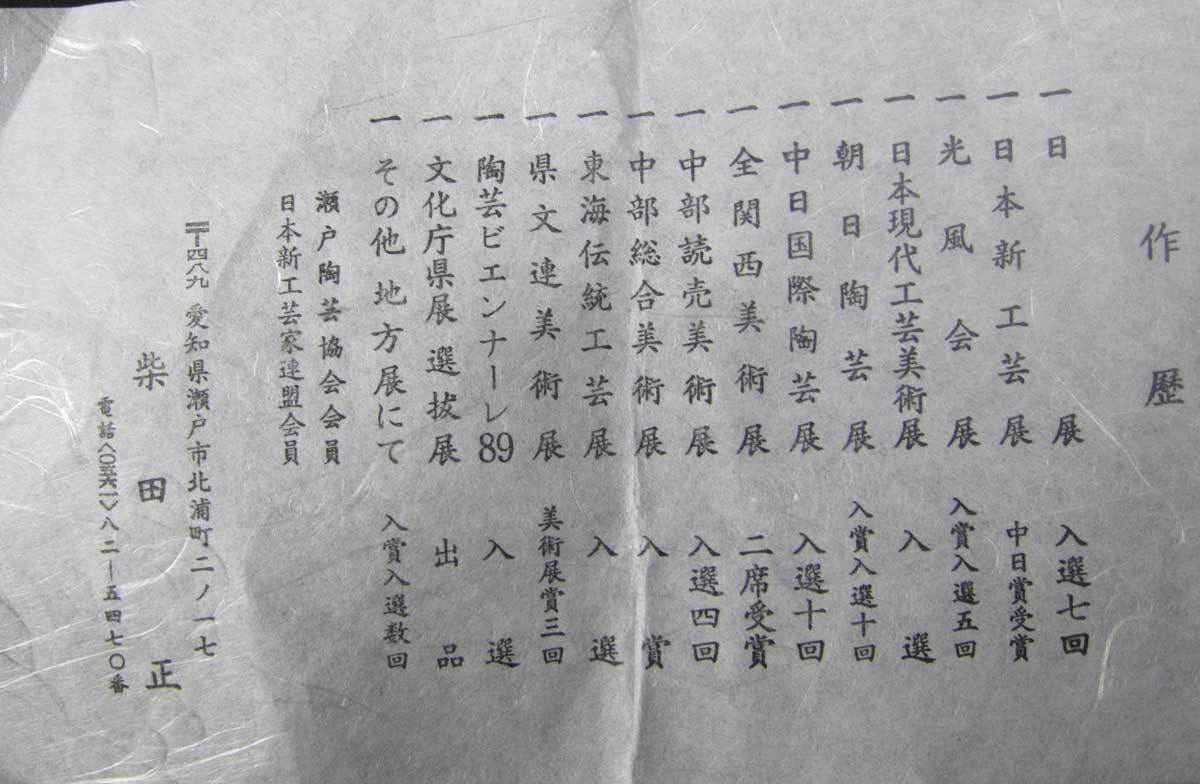 作歴
一 日展 入選七回
一 日本新工芸展 中日賞受賞
一 光風会展 入賞入選五回
一 日本現代工芸美術展 入選
一 朝日陶芸展 入賞入選十回
一 中日国際陶芸展 入選十回
一 全関西美術展 二席受賞
一 中部読売美術展 入選四回
一 中部総合美術展 入賞
一 東海伝統工芸展 入選
一 県文連美術展 美術展賞三回
一 陶芸ビエンナーレ89 入選
一 文化庁県展選抜展 出品
一 その他地方展にて 入賞入選数回
瀬戸陶芸協会会員
日本新工芸家連盟会員
〒四八九 愛知県瀬戸市北浦町二ノ一七
柴田正
電話〈〇五六一〉八二ー五四七〇番